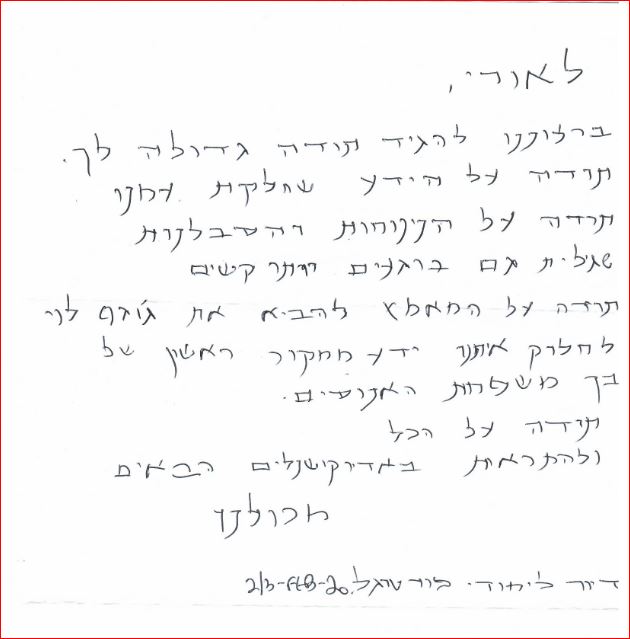 לאורי,
ברצוננו להגיד תודה גדולה לך.
תודה על הידע שחלקת עמנו
תודה על הנינוחות והסבלנות
שגילית גם ברגעים היותר קשים
תודה על המאמץ להביא את ג'וזף לוי
לחלוק איתנו ידע ממקור ראשון של
בן משפחת האנוסים.
תודה על הכל
ולהתראות בסדירקישנלים הבאים
מכולנו
דיור ליחודי. פורטוגל.